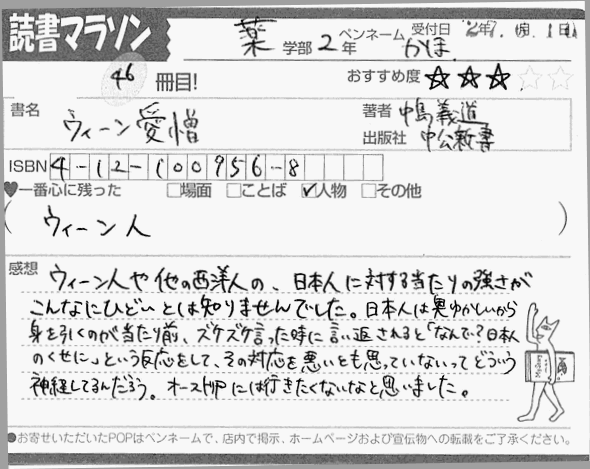 読書マラソン
薬 学部 2 年 ペンネーム かほ 受付日 2年7月1日
46 冊目! おすすめ度 ★★★☆☆
書名 ウィーン愛憎
著者 中島義道
出版社 中公新書
ISBN 4-12-100956-8
♥一番心に残った □場面 □ことば ☑人物 □その他
( ウィーン人 )
感想 ウィーン人や他の西洋人の、日本人に対する当たりの強さが
こんなにひどいとは知りませんでした。日本人は奥ゆかしいから
身を引くのが当たり前、ズケズケ言った時に言い返されると「なんで?日本人
のくせに」という反応をして、その対応を悪いとも思っていないってどういう
神経してるんだろう。オーストリアには行きたくないなと思いました。
●お寄せいただいたPOPはペンネームで、店内で掲示、ホームページおよび宣伝物への転載をご了承ください。